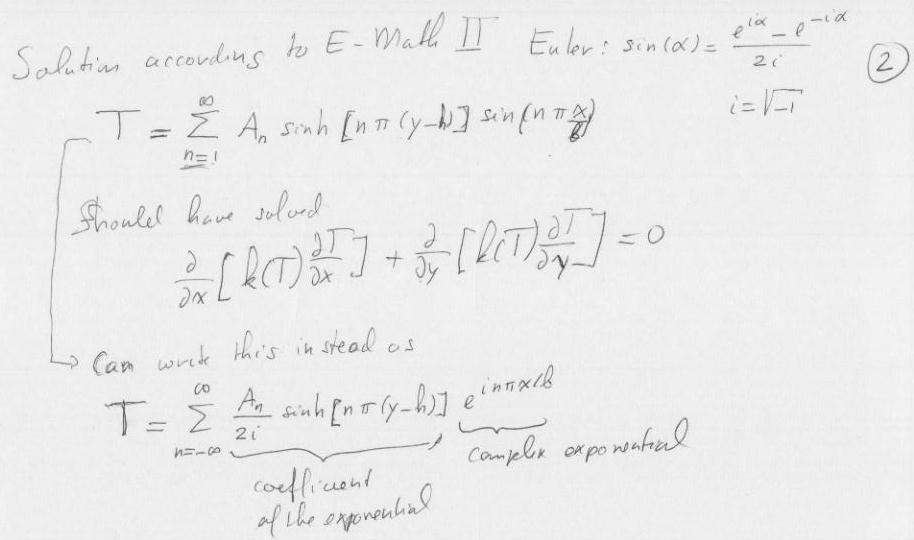 Solution according to E-Math II Euler: sin(α) = (e^{iα} - e^{-iα}) / 2i ②
i = √-1
T = ∑_{n=1}^{∞} A_n sinh [nπ(y-h)] sin(nπ x/b)
Should have solved
∂/∂x [k(T) ∂T/∂x] + ∂/∂y [k(T) ∂T/∂y] = 0
→ Can write this instead as
T = ∑_{n=-∞}^{∞} A_n/2i sinh [nπ(y-h)] e^{inπx/b}
coefficient complex exponential
of the exponential